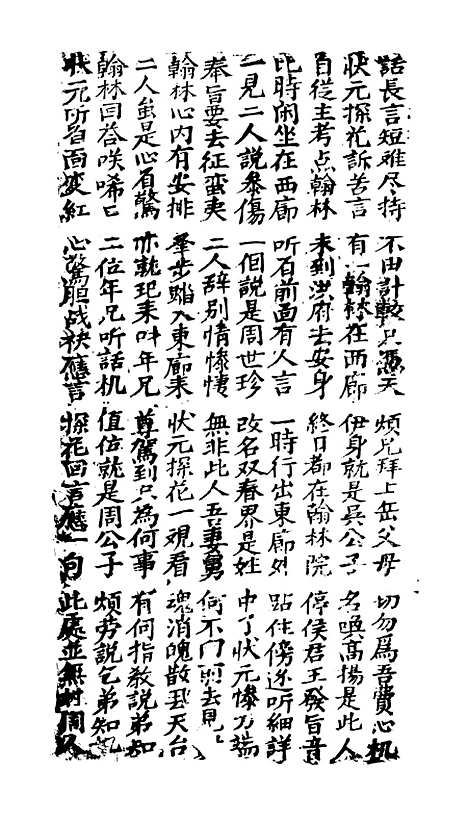 話長言短难尽持 不由計較只憑天 煩兄拜上岳父母 切勿爲吾費心机
状元探花訴苦言 有一翰林在西廊 伊身就是吳公子 名喚高揚是此人
自從主考点翰林 未到洪府去安身 終日都在翰林院 停侯君王發旨音
此時闲坐在西廊 听石前面有人言 一時行出東廊外 跕住傍边听細詳
一見二人説参傷 一個說是周世珍 改名双春界是姓 中了状元惨万端
奉旨要去征蛮夷 二人辞別情惨悽 無非此人吾妻舅 何不门前去見
翰林心内有安排 举步踏入東廊来 状元探花一覌看 魂消魄散到天台
二人虽是心有驚 亦就把来叫年兄 尊駕到只為何事 有何指教説弟知
翰林回答咲唏 二位年兄听話机 值位就是周公子 煩劳説乞弟知
状元听着面变紅 心驚胆战袂應言 探花回言應一句 此處並無 周